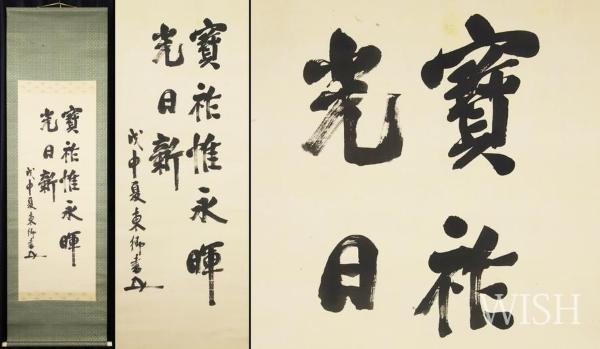 寶祚惟永暉
光日新
戊申夏東郷
寶祚惟永暉
光日新
戊申夏東郷
寶祚
光日
WISH